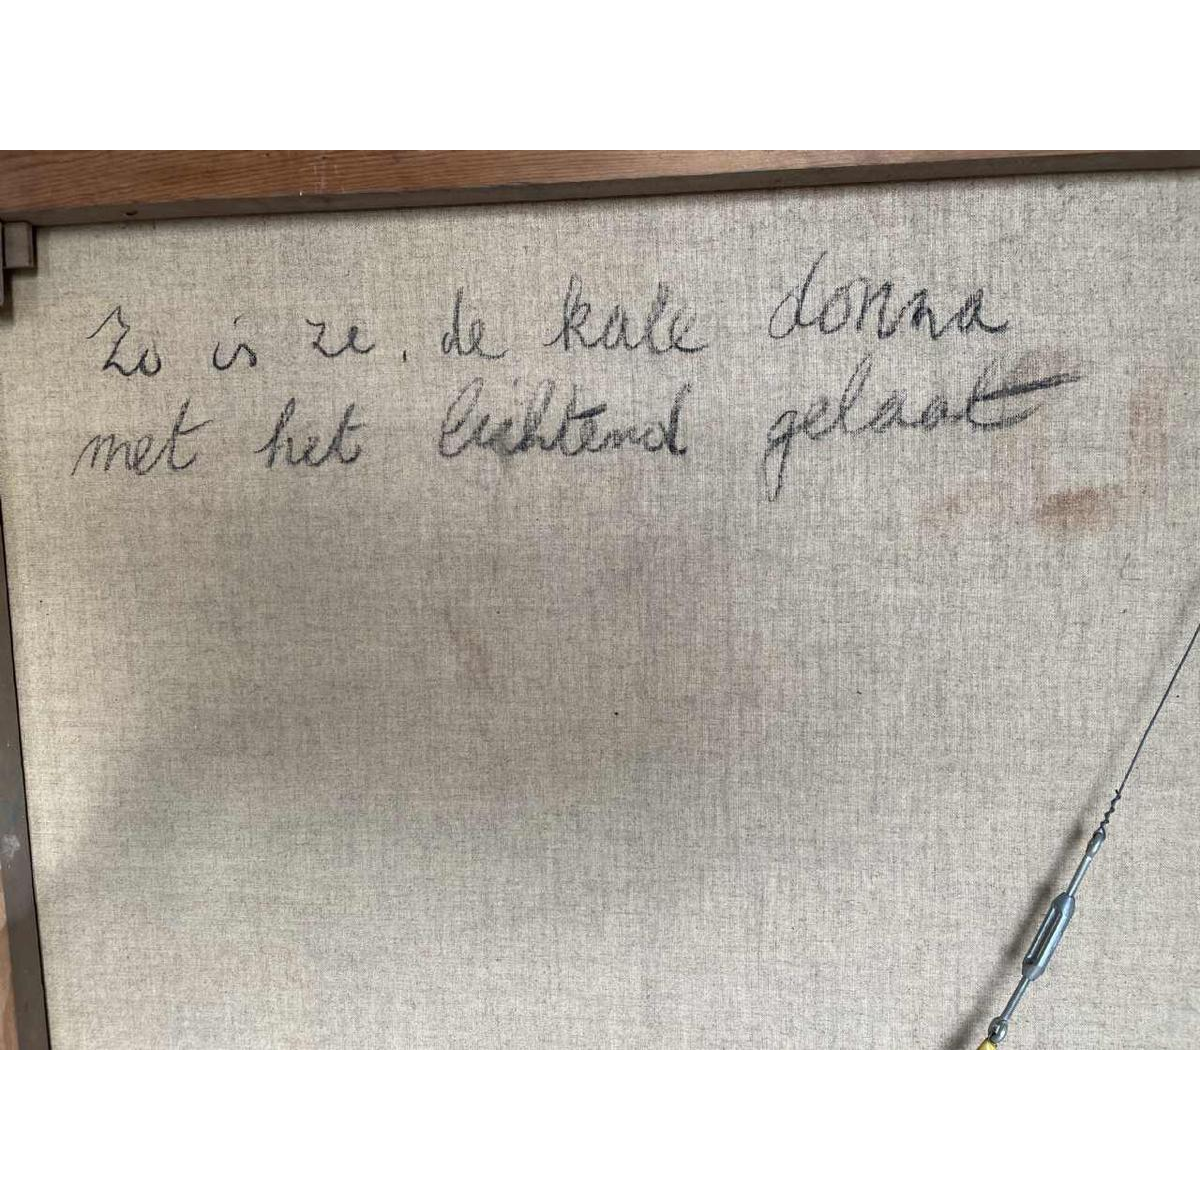 Zo is ze, de kale donna
met het lichtend gelaat